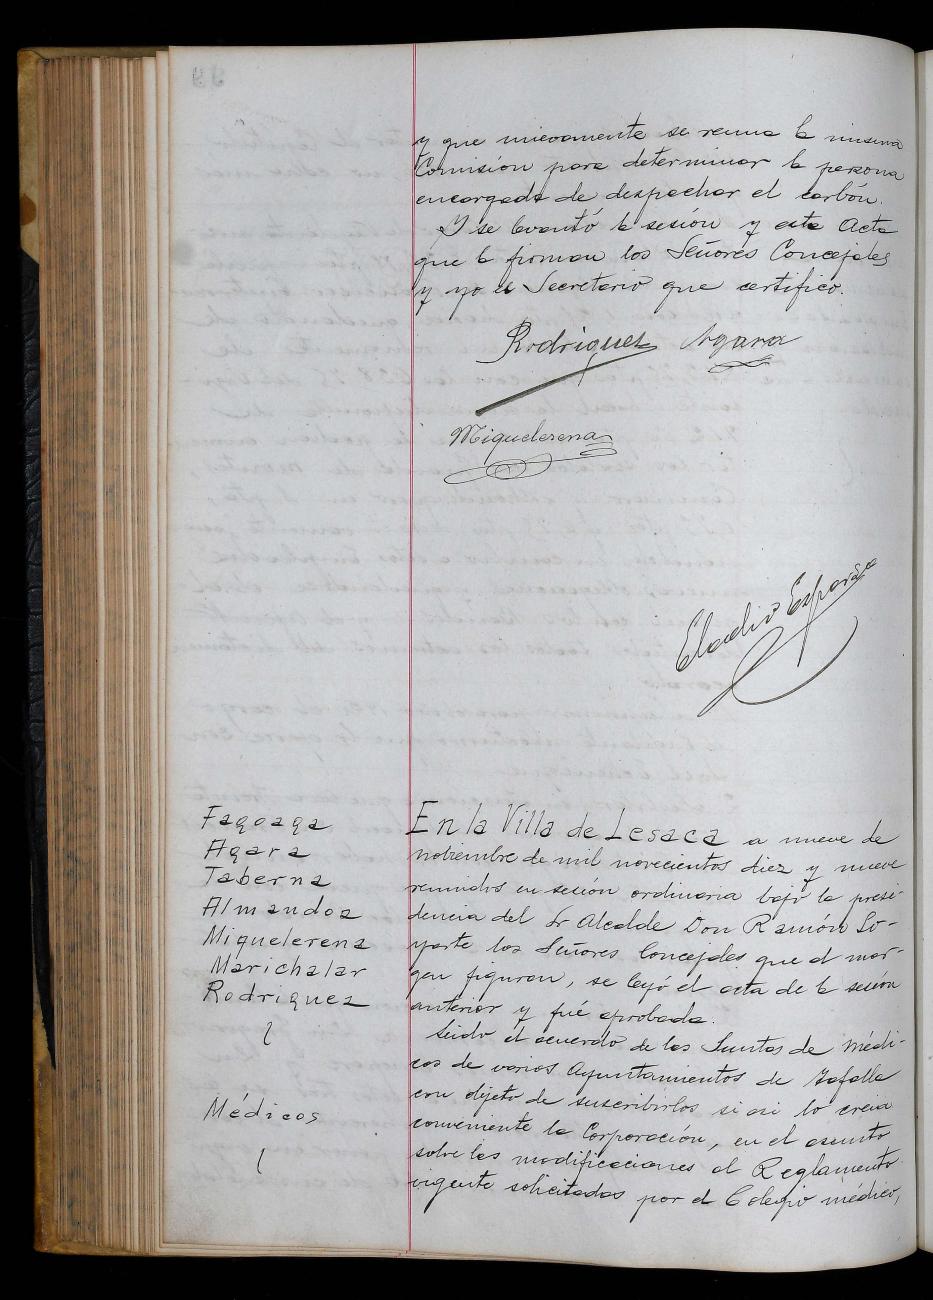 y que nuevamente se reuna la misma
Comisión para determinar la persona
encargada de despachar el carbón.
Y se levantó la sesión y esta Acta
que la firman los Señores Concejales
y yo el Secretario que certifico.
Rodriguez Agara
Miquelerena
Eladio Esparza
Fagoaga
Agara
Taberna
Almandoz
Miquelerena
Marichalar
Rodriguez
En la Villa de Lesaca a nueve de
noviembre de mil novecientos diez y nueve
reunidos en sesión ordinaria bajo la presi-
dencia del Sr Alcalde Don Ramón So-
yarte los Señores Concejales que al mar-
gen figuran, se leyó el acta de la sesión
anterior y fué aprobada.
Médicos
Leido el acuerdo de las Juntas de Médi-
cos de varios Ayuntamientos de Tafalla
con objeto de suscribirlos si asi lo creia
conveniente la Corporación, en el asunto
sobre las modificaciones al Reglamento
vigente solicitadas por el Colegio médico,